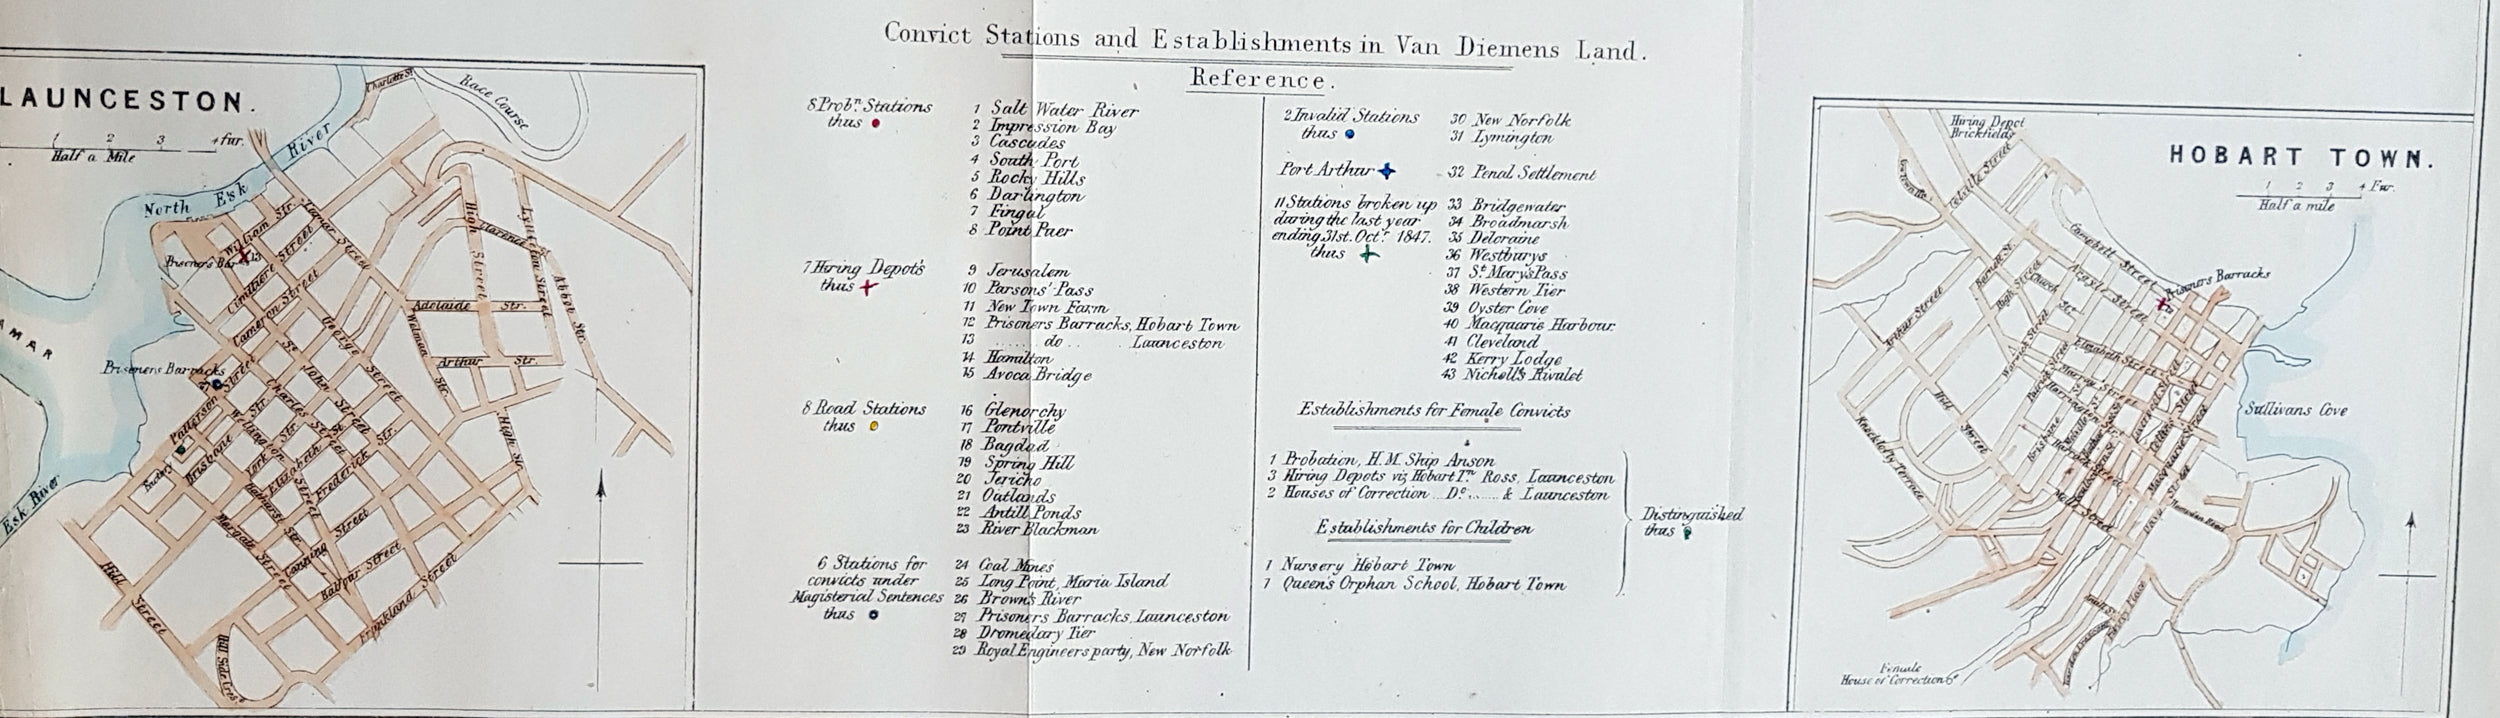 Convict Stations and Establishments in Van Diemens Land.
Reference.
LAUNCESTON.
1 2 3 4 fur.
Half a Mile
Charlotte St.
Race Course
River
North Esk
William Str.
Prisoners Bar 13
Cimitiere Street
Cameron Street
Tamar Street
High Street
Clarence
Lyttleton Street
Abbot Str.
Adelaide Str.
Welman Str.
Arthur Str.
George Street
St. John Street
Prisoners Barracks
27
Patterson Street
Charles Street
Brisbane Str.
Wellington Str.
York Str.
Elizabeth Street
Bathurst Str.
Frederick Str.
High St.
Margaret Street
Canning Street
Balfour Street
Frankland Street
Hill Street
Hill Side Cres.
AMAR
Esk River
8 Probn. Stations
thus
1 Salt Water River
2 Impression Bay
3 Cascades
4 South Port
5 Rocky Hills
6 Darlington
7 Fingal
8 Point Puer
7 Hiring Depot's
thus
9 Jerusalem
10 Parsons' Pass
11 New Town Farm
12 Prisoners Barracks, Hobart Town
13 ...... do .. Launceston
14 Hamilton
15 Avoca Bridge
8 Road Stations
thus
16 Glenorchy
17 Pontville
18 Bagdad
19 Spring Hill
20 Jericho
21 Outlands
22 Antill Ponds
23 River Blackman
6 Stations for
convicts under
Magisterial Sentences
thus
24 Coal Mines
25 Long Point, Maria Island
26 Brown's River
27 Prisoners Barracks, Launceston
28 Dromedary Tier
29 Royal Engineers party, New Norfolk
2 Invalid Stations
thus
30 New Norfolk
31 Lymington
Port Arthur
32 Penal Settlement
11 Stations broken up
during the last year
ending 31st. Octr. 1847.
thus
33 Bridgewater
34 Broadmarsh
35 Deloraine
36 Westburys
37 St. Mary's Pass
38 Western Tier
39 Oyster Cove
40 Macquarie Harbour
41 Cleveland
42 Kerry Lodge
43 Nicholl's Rivulet
Establishments for Female Convicts
1 Probation, H.M. Ship Anson
3 Hiring Depots viz Hobart Tn. Ross, Launceston
2 Houses of Correction Do. ..... & Launceston
Establishments for Children
1 Nursery Hobart Town
1 Queen's Orphan School, Hobart Town
Distinguished
thus
HOBART TOWN.
1 2 3 4 Fur.
Half a mile
Hiring Depot
Brickfields
Melville Street
Campbell Street
Argyle Street
Prisoners Barracks
Church Str.
High Street
Arthur Street
Warwick Street
Elizabeth Street
Murray Street
Harrington
Hill Street
Knocklofty Terrace
Brisbane
Collins Street
Macquarie Street
Molle Street
Hampden Road
Sullivans Cove
Female
House of Correction